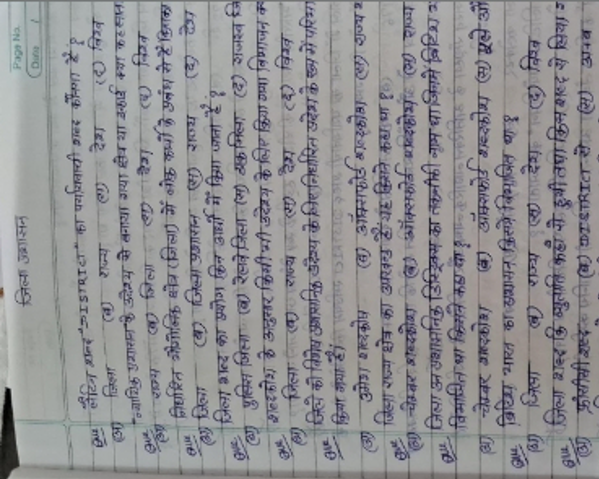 Page No.
Date
जिला प्रशासन
प्रश्न लैटिन शब्द "DISTRICT" का पर्यायवाची शब्द कौनसा है ?
(अ) जिला (ब) राज्य (स) देश (द) विश्व
प्रश्न "न्यायिक प्रशासन के उद्देश्य से बनाया गया क्षेत्र या इकाई क्या कहलाता
(अ) राज्य (ब) जिला (स) देश (द) विश्व
प्रश्न निर्धारित भौगोलिक क्षेत्र (जिला) में लोक कार्यों के प्रबंध से है
(अ) जिला (ब) जिला प्रशासन (स) राज्य (द) देश
प्रश्न जिला शब्द का प्रयोग किन अर्थों में किया जाता है ?
(अ) पुलिस जिला (ब) रेलवे जिला (स) (द) राजस्व
प्रश्न शब्दकोश के अनुसार किसी भी उद्देश्य के लिए किया गया विभाजन
(अ) जिला (ब) राज्य (स) देश (द) विश्व
प्रश्न जिले को विशेष प्रशासनिक उद्देश्य के लिए निर्धारित प्रदेश के रूप में
किया गया है।
(अ) शब्दकोश (ब) ऑक्सफोर्ड शब्दकोश (स) राज्य
प्रश्न जिला राज्य क्षेत्र का उपखण्ड है यह किसने कहा था
(अ) चेम्बर शब्दकोश (ब) ऑक्सफोर्ड शब्दकोश (स) राज्य
प्रश्न जिला उन प्रशासनिक का तकनीकी नाम था जिनमें ब्रिटिश
विभाजित था किसने कहा था
(अ) चेम्बर शब्दकोश (ब) ऑक्सफोर्ड शब्दकोश (स)
प्रश्न ब्रिटिश भारत का प्रशासन किसमें विभाजित था ?
(अ) जिला (ब) राज्य (स) देश (द) विश्व
प्रश्न जिला शब्द कि व्युत्पत्ति कहाँ से हुयी तथा किस शब्द से लिया
(अ) फ्रांसीसी शब्द (ब) DISTRICT से (स)